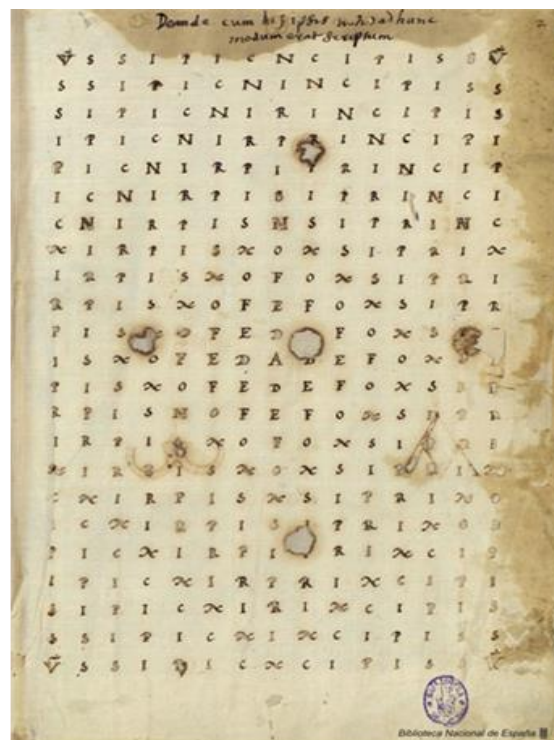 Deinde cum his ipsis notis ad hunc
modum erat scriptum
V S S I P I C N C I P I S S V
S S I P I C N I N C I P I S S
S I P I C N I R I N C I P I S
I P I C N I R P R I N C I P I
P I C N I R P I R I N C I P
I C N I R P I S I P R I N C I
C N I R P I S N S I P R I N C
N I R P I S N O N S I P R I N
I R P I S N O F O N S I P R I
R P I S N O F E F O N S I P R
P I S O F E D F O N S
I S N O F E D A D E F O N
P I S N O F E D E F O N S
R P I S N O F E F O N S I P R
I R P I S N O F O N S I P R
N I R P I S N O N S I P R I N
C N I R P I S N S I P R I N
I C N I R P I S I P R I N
P I C N I R P I R I N C I P
I P I C N I R P R I N C I P I
S I P I C N I R I N C I P I S
S S I P I C N I N C I P I S S
V S S I P I C N C I P I S S V
Biblioteca Nacional de España